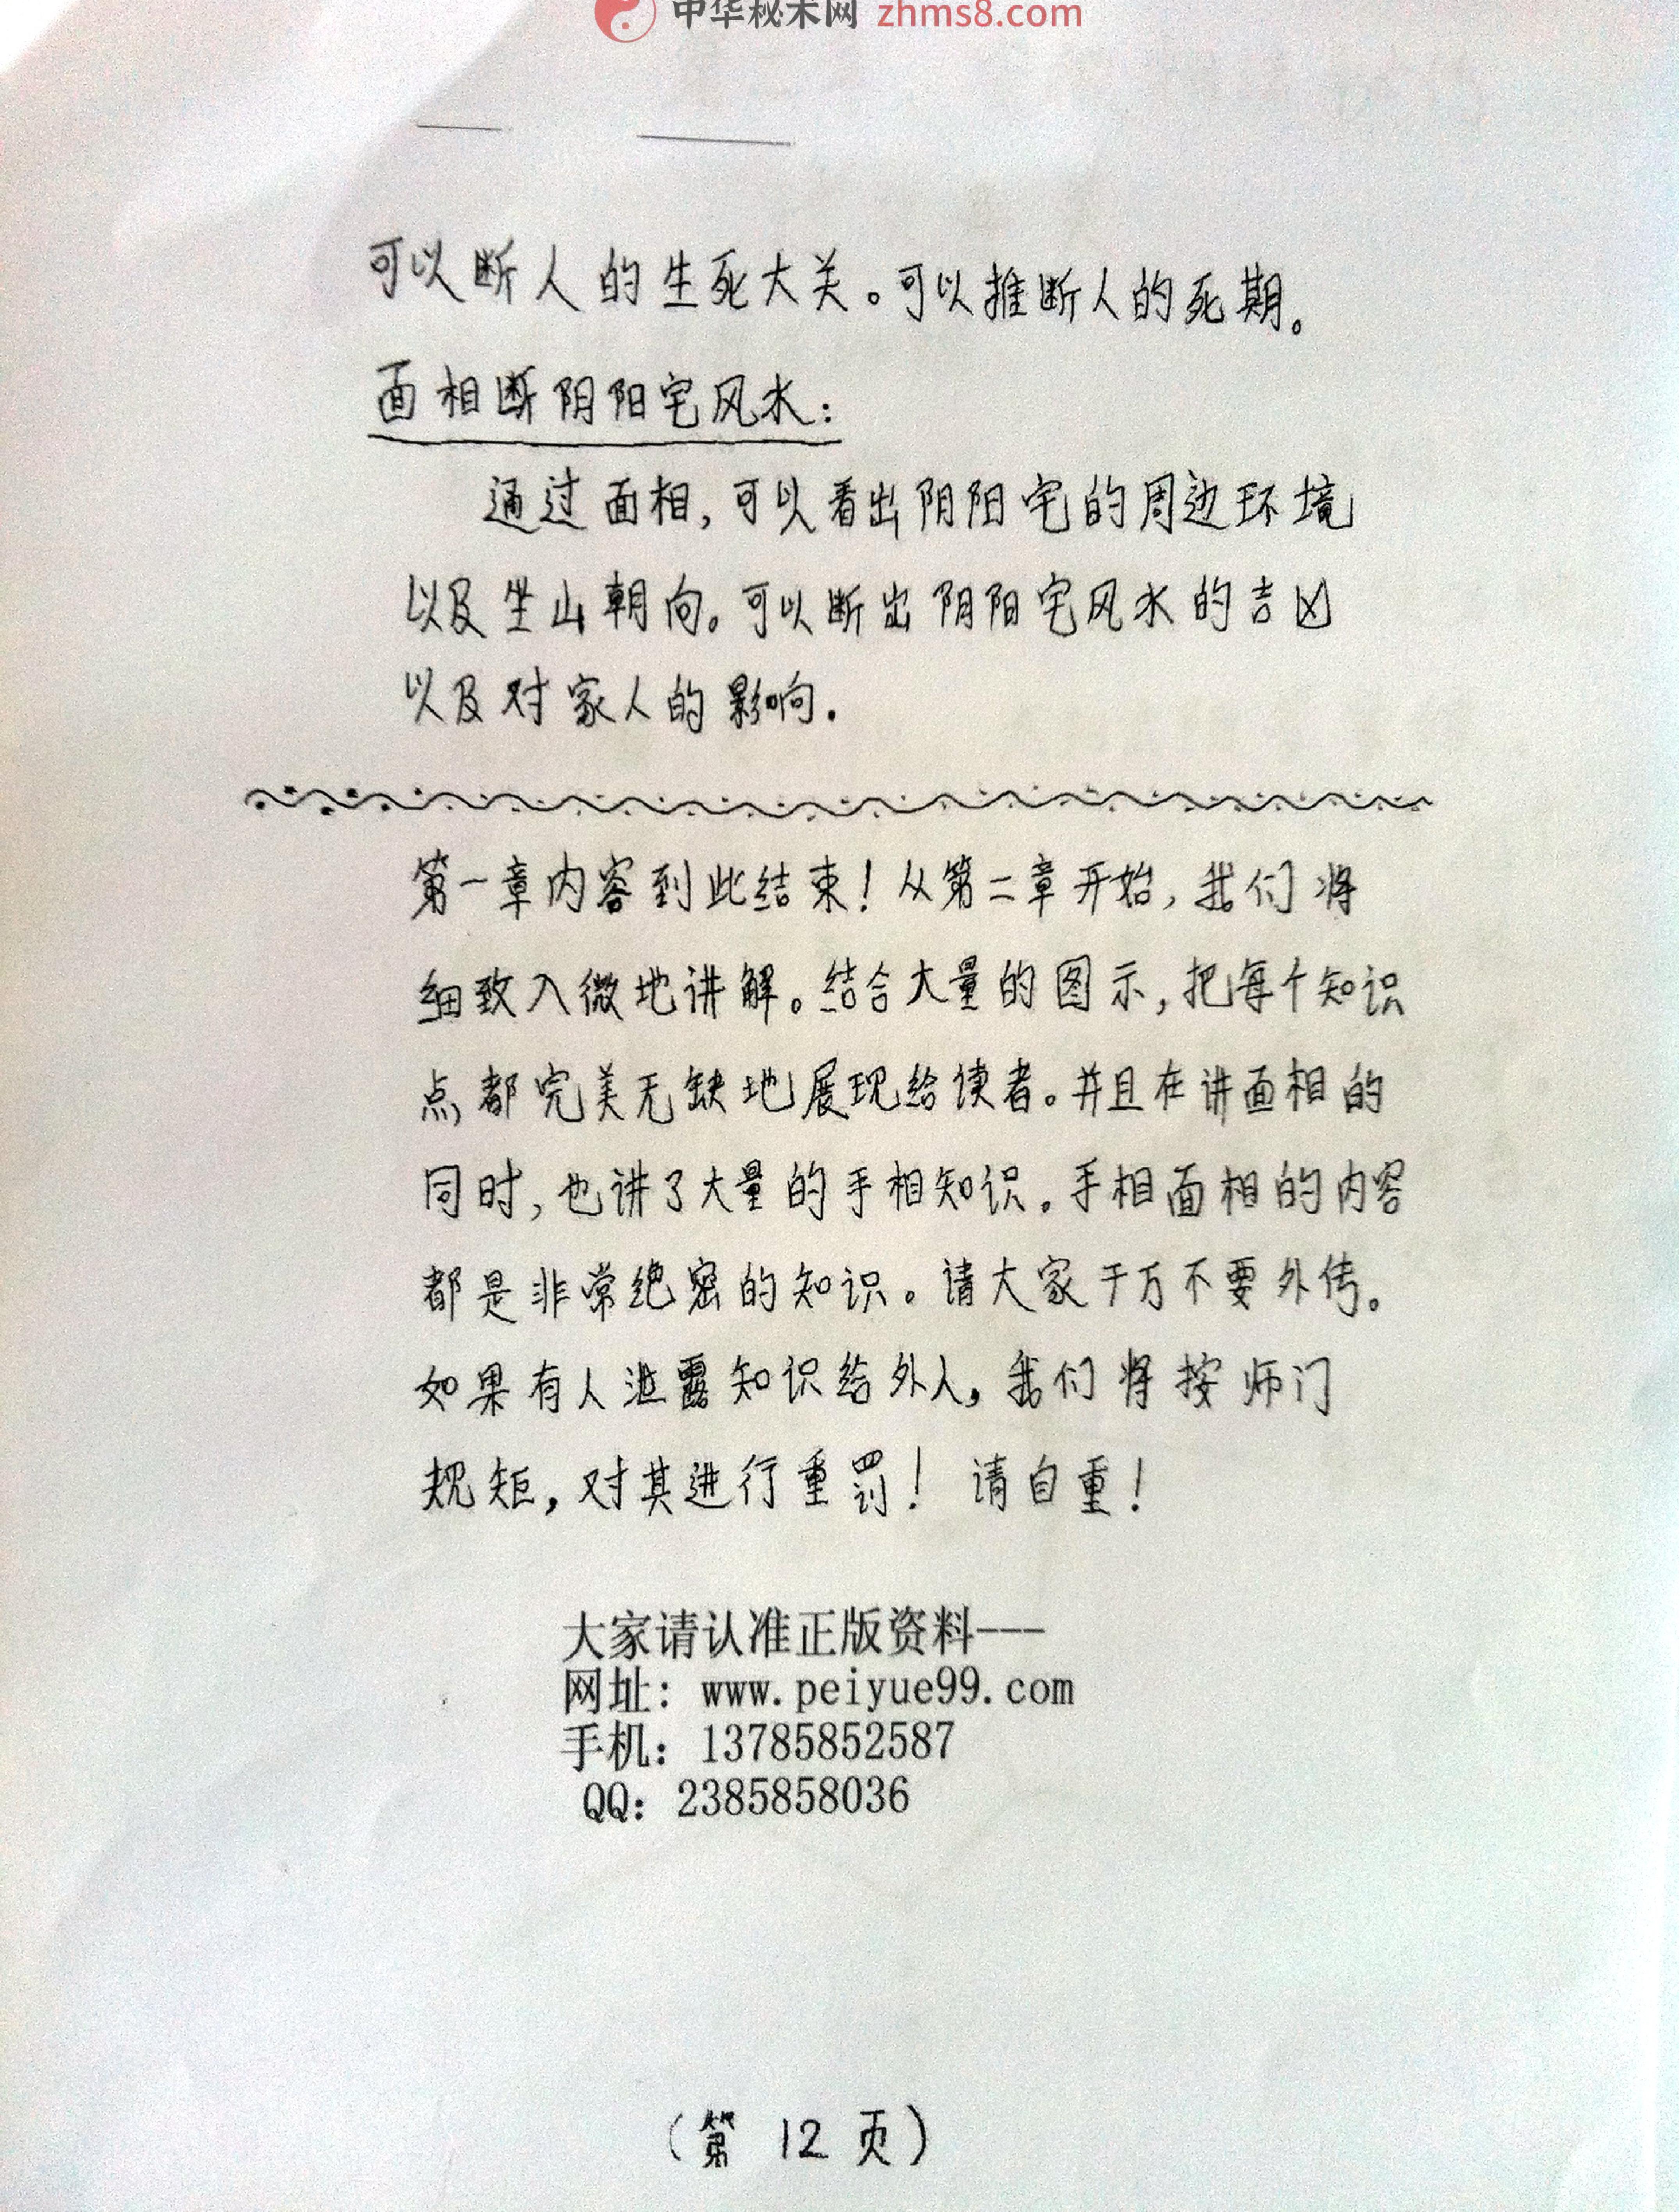 中华秘术网 zhms8.com
可以断人的生死大关。可以推断人的死期。
面相断阴阳宅风水：
通过面相，可以看出阴阳宅的周边环境
以及坐山朝向。可以断出阴阳宅风水的吉凶
以及对家人的影响.
第一章内容到此结束！从第二章开始，我们将
细致入微地讲解。结合大量的图示，把每个知识
点都完美无缺地展现给读者。并且在讲面相的
同时，也讲了大量的手相知识。手相面相的内容
都是非常绝密的知识。请大家千万不要外传。
如果有人泄露知识给外人，我们将按师门
规矩，对其进行重罚！请自重！
大家请认准正版资料---
网址：www.peiyue99.com
手机：13785852587
QQ：2385858036
（第 12 页）